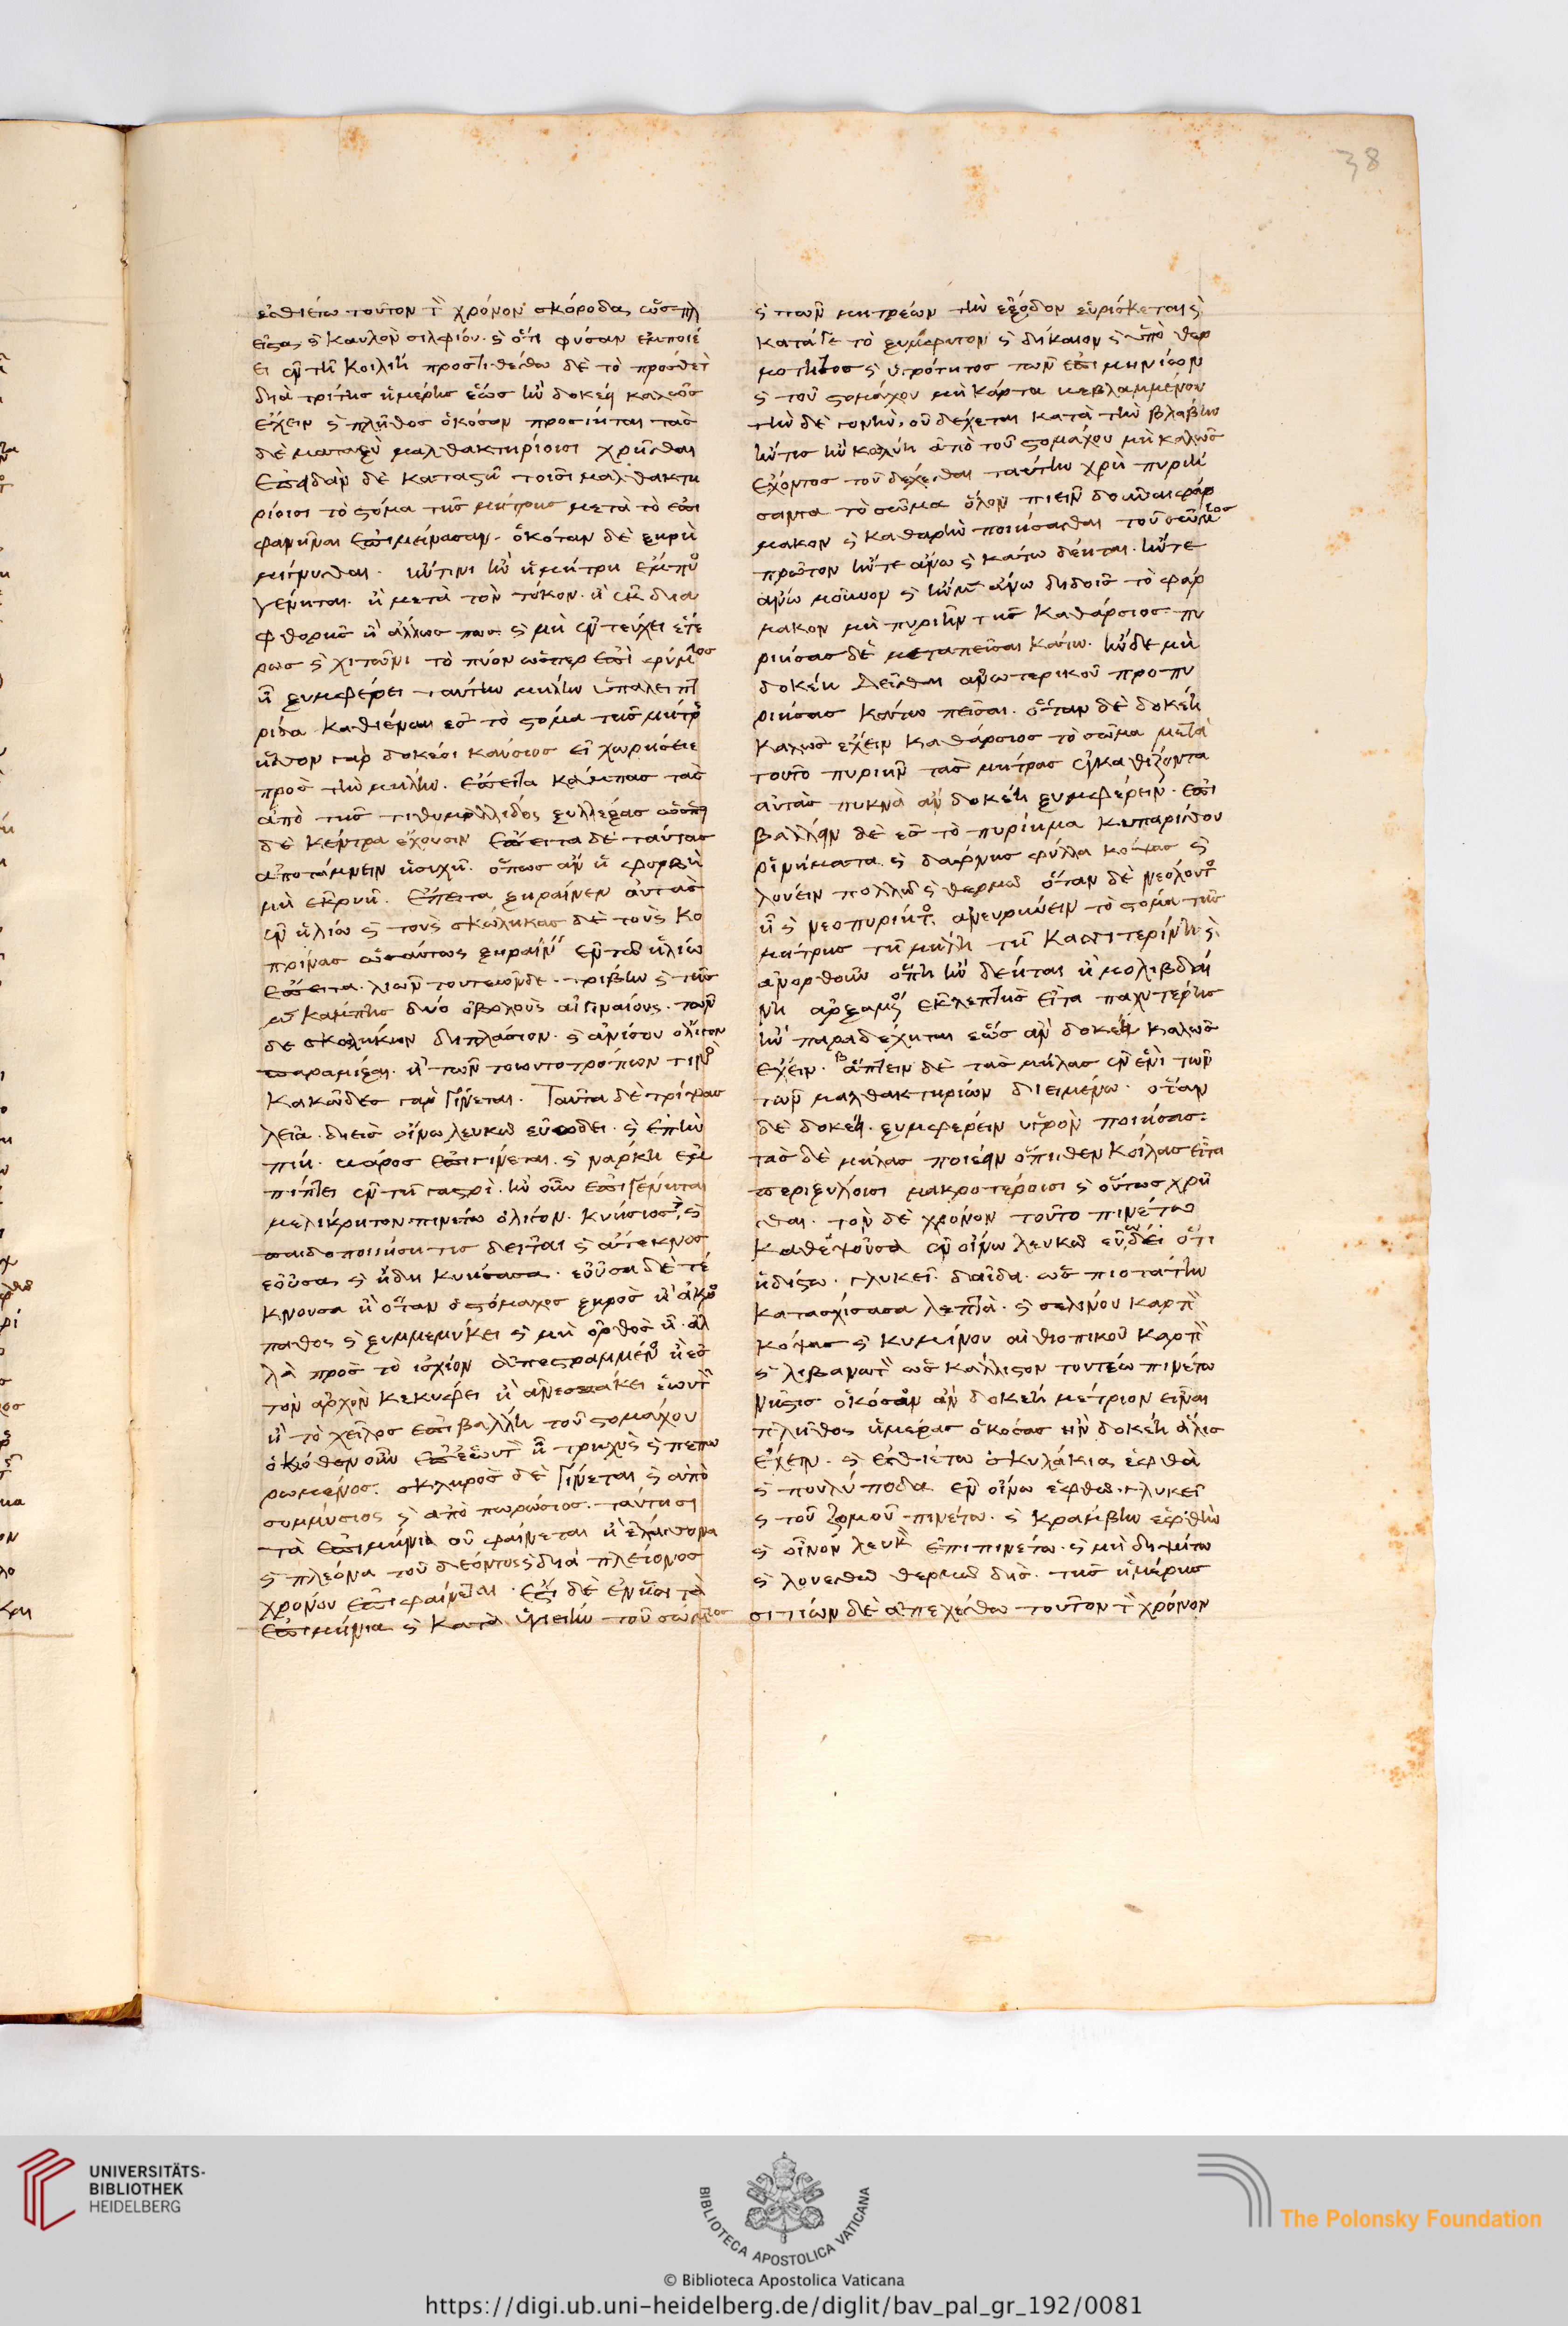 38
ἐσθιέτω τοῦτον τὸν χρόνον σκόροδα, ὡς πλ
εῖστα, καὶ καυλὸν σιλφίου. καὶ ὅτι φύσαν ἐμποιέ
ει ἐν τῆ κοιλίη προστιθέσθω δὲ τὸ προσθετὸν
διὰ τρίτης ἡμέρης ἕως ἢν δοκέη καλῶς
ἔχειν καὶ πλῆθος ὁκόσον προσίηται τὰς
δὲ μεταξὺ μαλθακτηρίοισι χρῆσθαι
ἐπειδὰν δὲ καταστῆ τοῖσι μαλθακτη
ρίοισι τὸ στόμα τῆς μήτρης μετὰ τὸ ἐπι
φανῆναι ἐπιμείνασαν. ὁκόταν δὲ ξηρὴ
μίσγεσθαι. ἥτινι ἢν ἡ μήτρη ἔμπυος
γένηται. ἢ μετὰ τὸν τόκον. ἢ ἐκ δια
φθορῆς ἢ ἄλλως πως καὶ μὴ ἐν τεύχει ἑτέ
ρως καὶ χιτῶνι τὸ πύον ὥσπερ ἐπὶ φύματος
ἦ ξυμφέρει ταύτην μήλην ὑπαλειπτ
ρίδα καθιέναι ἐς τὸ στόμα τῆς μήτρης
ἧσσον γὰρ δοκέοι καύσιος εἰ χωρήσειε
πρὸς τὴν μήλην. ἔπειτα κάμπας τὰς
ἀπὸ τῆς τιθυμαλλίδος ξυλλέξας
δὲ κέντρα ἔχουσιν ἔπειτα δὲ ταύτας
ἀποτάμνειν ἡσυχῆ. ὅπως ἂν ἡ φορβὴ
μὴ ἐκρυῆ. ἔπειτα ξηραίνειν αὐτὰς
ἐν ἡλίω καὶ τοὺς σκώληκας δὲ τοὺς κο
πρίνας ὡσαύτως ξηραίνειν ἐν τῶ ἡλίω
ἔπειτα. λιῶν τουτεωνδε. τρίβειν καὶ τῆς
μὲν κάμπης δύο ὀβολοὺς αἰγιναίους. τῶν
δὲ σκωλήκων διπλάσιον. καὶ ἀνίσου ὀλίγον
παραμίξαι. ἢ τῶν τοιουτοτρόπων τινὸς
κακῶδες γὰρ γίνεται. Ταῦτα δὲ τρίψας
λεῖα. διεὶς οἴνω λευκῶ εὐώδει. καὶ ἐπὴν
πίη. κάρος ἐπιγίνεται. καὶ νάρκη ἐμ
πίπτει ἐν τῆ γαστρί. ἢν οὖν ἐπιγένηται
μελίκρητον πινέτω ὀλίγον. κυήσιος καὶ
παιδοποιήσιός τις δεῖται καὶ ἄτεκνος
ἐοῦσα, καὶ ἤδη κυήσασα. ἐοῦσα δὲ τέ
κνουσα ἢ ὅταν ὁ στόμαχος ξηρὸς ἢ ἄκρος
παθος καὶ ξυμμεμύκει καὶ μὴ ὀρθὸς ἦ. ἀλ
λὰ πρὸς τὸ ἰσχίον ἀπεστραμμένος ἢ ἐς
τὸν ἀρχὸν κεκυφέει ἢ ἀνεσπάκει ἑωυτὸν
ἢ τὸ χεῖλος ἐπιβάλλη τοῦ στομάχου
ὁκόθεν οὖν ἐπ' ἑωυτὸν ἦ τρηχὺς καὶ πεπω
ρωμένος. σκληρὸς δὲ γίνεται καὶ ἀπὸ
συμμύσιος καὶ ἀπὸ πωρώσιος. ταύτησι
τὰ ἐπιμήνια οὐ φαίνεται ἢ ἐλάσσονα
καὶ πλέονα τοῦ δέοντος καὶ διὰ πλείονος
χρόνου ἐπιφαίνεται. ἔστι δὲ ἐνῆσι τὰ
ἐπιμήνια καὶ κατὰ ὑγιείην τοῦ σώματος
καὶ τῶν μητρέων τὴν ἔξοδον εὑρίσκεται καὶ
κατά γε τὸ ξύμφυτον καὶ δίκαιον καὶ ὑπὸ θερ
μότητος καὶ ὑγρότητος τῶν ἐπιμηνίων
καὶ τοῦ στομάχου μὴ κάρτα βεβλαμμένου
τὴν δὲ γονὴν, οὐ δέχεται κατὰ τὴν βλάβην
ἥτις ἢν κωλύη ἀπὸ τοῦ στομάχου μὴ καλῶς
ἔχοντος τοῦ δέχεσθαι ταύτην χρὴ πυριή
σαντα τὸ σῶμα ὅλον πιεῖν δοῦναι φάρ
μακον καὶ κάθαρσιν ποιήσασθαι τοῦ σώματος
πρῶτον ἤντε ἄνω καὶ κάτω δέηται. ἤντε
ἄνω μοῦνον καὶ ἢν μὲν ἄνω διδοῖς τὸ φάρ
μακον μὴ πυριῆν τῆς καθάρσιος πυ
ριήσας δὲ μεταπεῖσαι κάτω. ἢν δὲ μὴ
δοκέη δεῖσθαι ἀνωτερικοῦ προπυ
ριήσας κάτω πεῖσαι. ὅταν δὲ δοκέη
καλῶς ἔχειν καθάρσιος τὸ σῶμα μετὰ
τοῦτο πυριῆν τὰς μήτρας ἐγκαθίζοντα
αὐτὰς πυκνὰ ἂν δοκέη ξυμφέρειν. ἐπι
βάλλειν δὲ ἐς τὸ πυρίημα κυπαρίσσου
ῥινήματα καὶ δάφνης φύλλα κόψας καὶ
λούειν πολλῶ καὶ θερμῶ ὅταν δὲ νεόλουτος
ἦ καὶ νεοπυρίητος. ἀνευρύνειν τὸ στόμα τῆς
μήτρης τῆ μήλη τῆ κασσιτερίνη καὶ
ἀνορθοῦν ὅπη ἢν δέηται ἢ μολιβδαί
νη ἀρξάμενος ἐκ λεπτῆς εἶτα παχυτέρης
ἢν παραδέχηται ἕως ἂν δοκέη καλῶς
ἔχειν. βάπτειν δὲ τὰς μήλας ἐν ἑνὶ τῶν
τῶν μαλθακτηρίων διειμένω. ὅταν
δὲ δοκέη. ξυμφέρειν ὑγρὸν ποιήσας.
τὰς δὲ μήλας ποιέειν ὄπισθεν κοίλας εἶτα
περὶ ξύλοισι μακροτέροισι καὶ οὕτως χρῆ
σθαι. τὸν δὲ χρόνον τοῦτο πινέτω
καθέψουσα ἐν οἴνω λευκῶ εὐώδει ὅτι
ἡδίστω. γλυκεῖ. δαῖδα. ὡς πιοτάτην
κατασχίσασα λεπτὰ. καὶ σελίνου καρπὸν
κόψας καὶ κυμίνου αἰθιοπικοῦ καρπὸν
καὶ λιβανωτὸν ὡς κάλλιστον τουτέω πινέτω
νῆστις ὁκόσον ἂν δοκέη μέτριον εἶναι
πλῆθος ἡμέρας ὁκόσας ἢν δοκέη ἅλις
ἔχειν. καὶ ἐσθιέτω σκυλάκια, ἑφθὰ
καὶ πουλύποδα ἐν οἴνω ἑφθῶ γλυκεῖ
καὶ τοῦ ζωμοῦ πινέτω. καὶ κράμβην ἑφθὴν
καὶ οἶνον λευκὸν ἐπιπινέτω. καὶ μὴ διψήτω
καὶ λουέσθω θερμῶ δὶς. τῆς ἡμέρης
σιτίων δὲ ἀπεχέσθω τοῦτον τὸν χρόνον
UNIVERSITÄTS-
BIBLIOTHEK
HEIDELBERG
BIBLIOTECA APOSTOLICA VATICANA
The Polonsky Foundation
© Biblioteca Apostolica Vaticana
https://digi.ub.uni-heidelberg.de/diglit/bav_pal_gr_192/0081